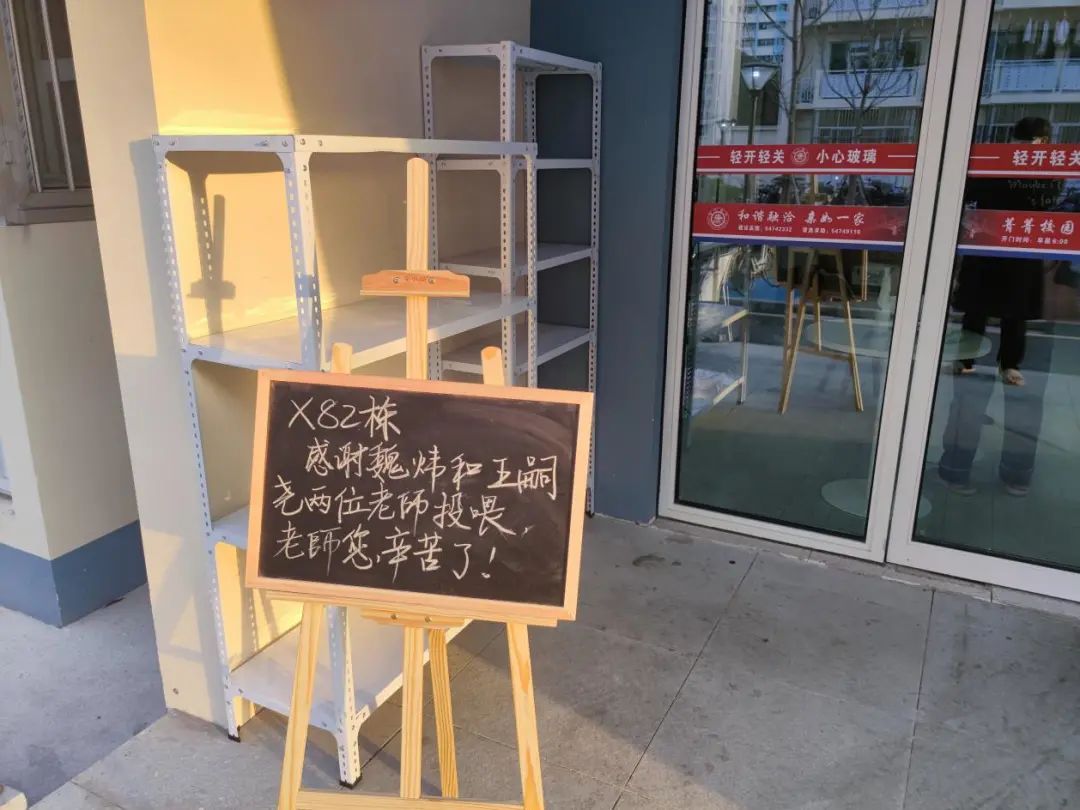 X82栋
感谢魏炜和王嗣
尧两位老師投喂,
老師您辛苦了!
轻开轻关 小心玻璃
轻开轻关
和谐融洽 亲如一家
菁菁校园
开门时间:早晨6:00